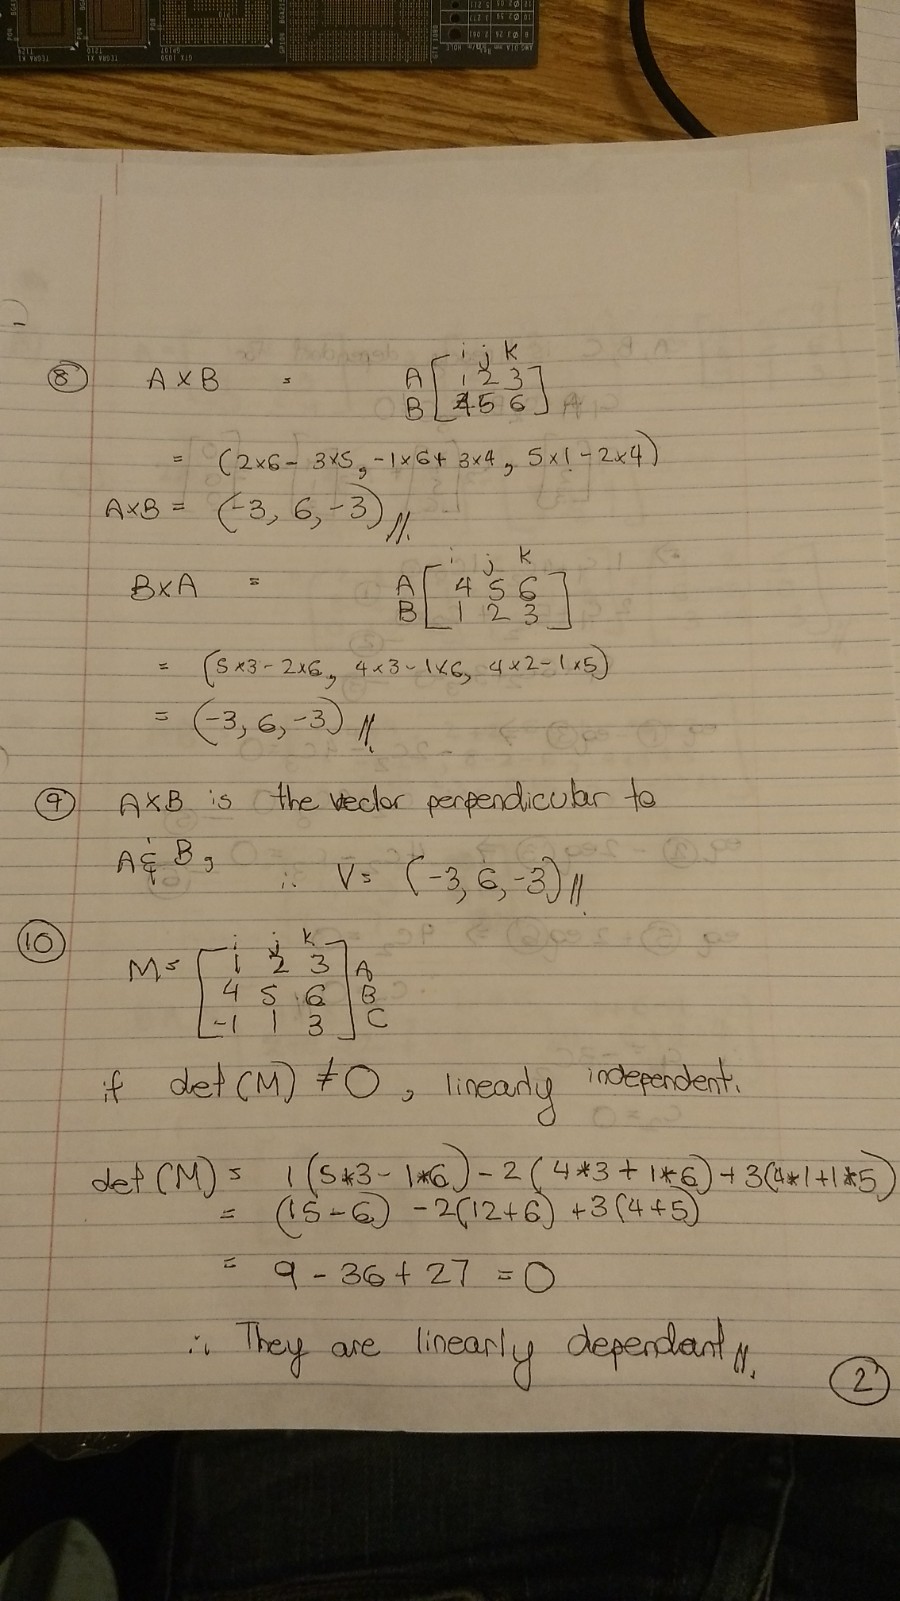 8 A × B = i j k
A [ 1 2 3 ]
B [ 4 5 6 ]
= (2×6 - 3×5, -1×6 + 3×4, 5×1 - 2×4)
A×B = (-3, 6, -3) //.
B×A = i j k
A [ 4 5 6 ]
B [ 1 2 3 ]
= (5×3 - 2×6, 4×3 - 1×6, 4×2 - 1×5)
= (-3, 6, -3) //.
9 A×B is the vector perpendicular to
A & B, ∴ V = (-3, 6, -3) //.
10 i j k
M = [ 1 2 3 ] A
[ 4 5 6 ] B
[ -1 1 3 ] C
if det(M) ≠ 0, linearly independent.
det(M) = 1(5*3 - 1*6) - 2(4*3 + 1*6) + 3(4*1 + 1*5)
= (15 - 6) - 2(12+6) + 3(4+5)
= 9 - 36 + 27 = 0
∴ They are linearly dependant //.
2